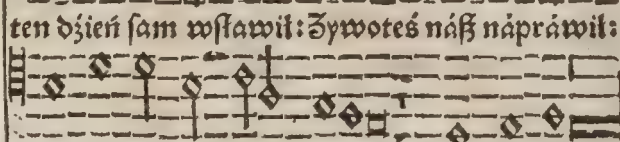 ten dzień ſam wſławił: Zywoteś náß nápráwił: